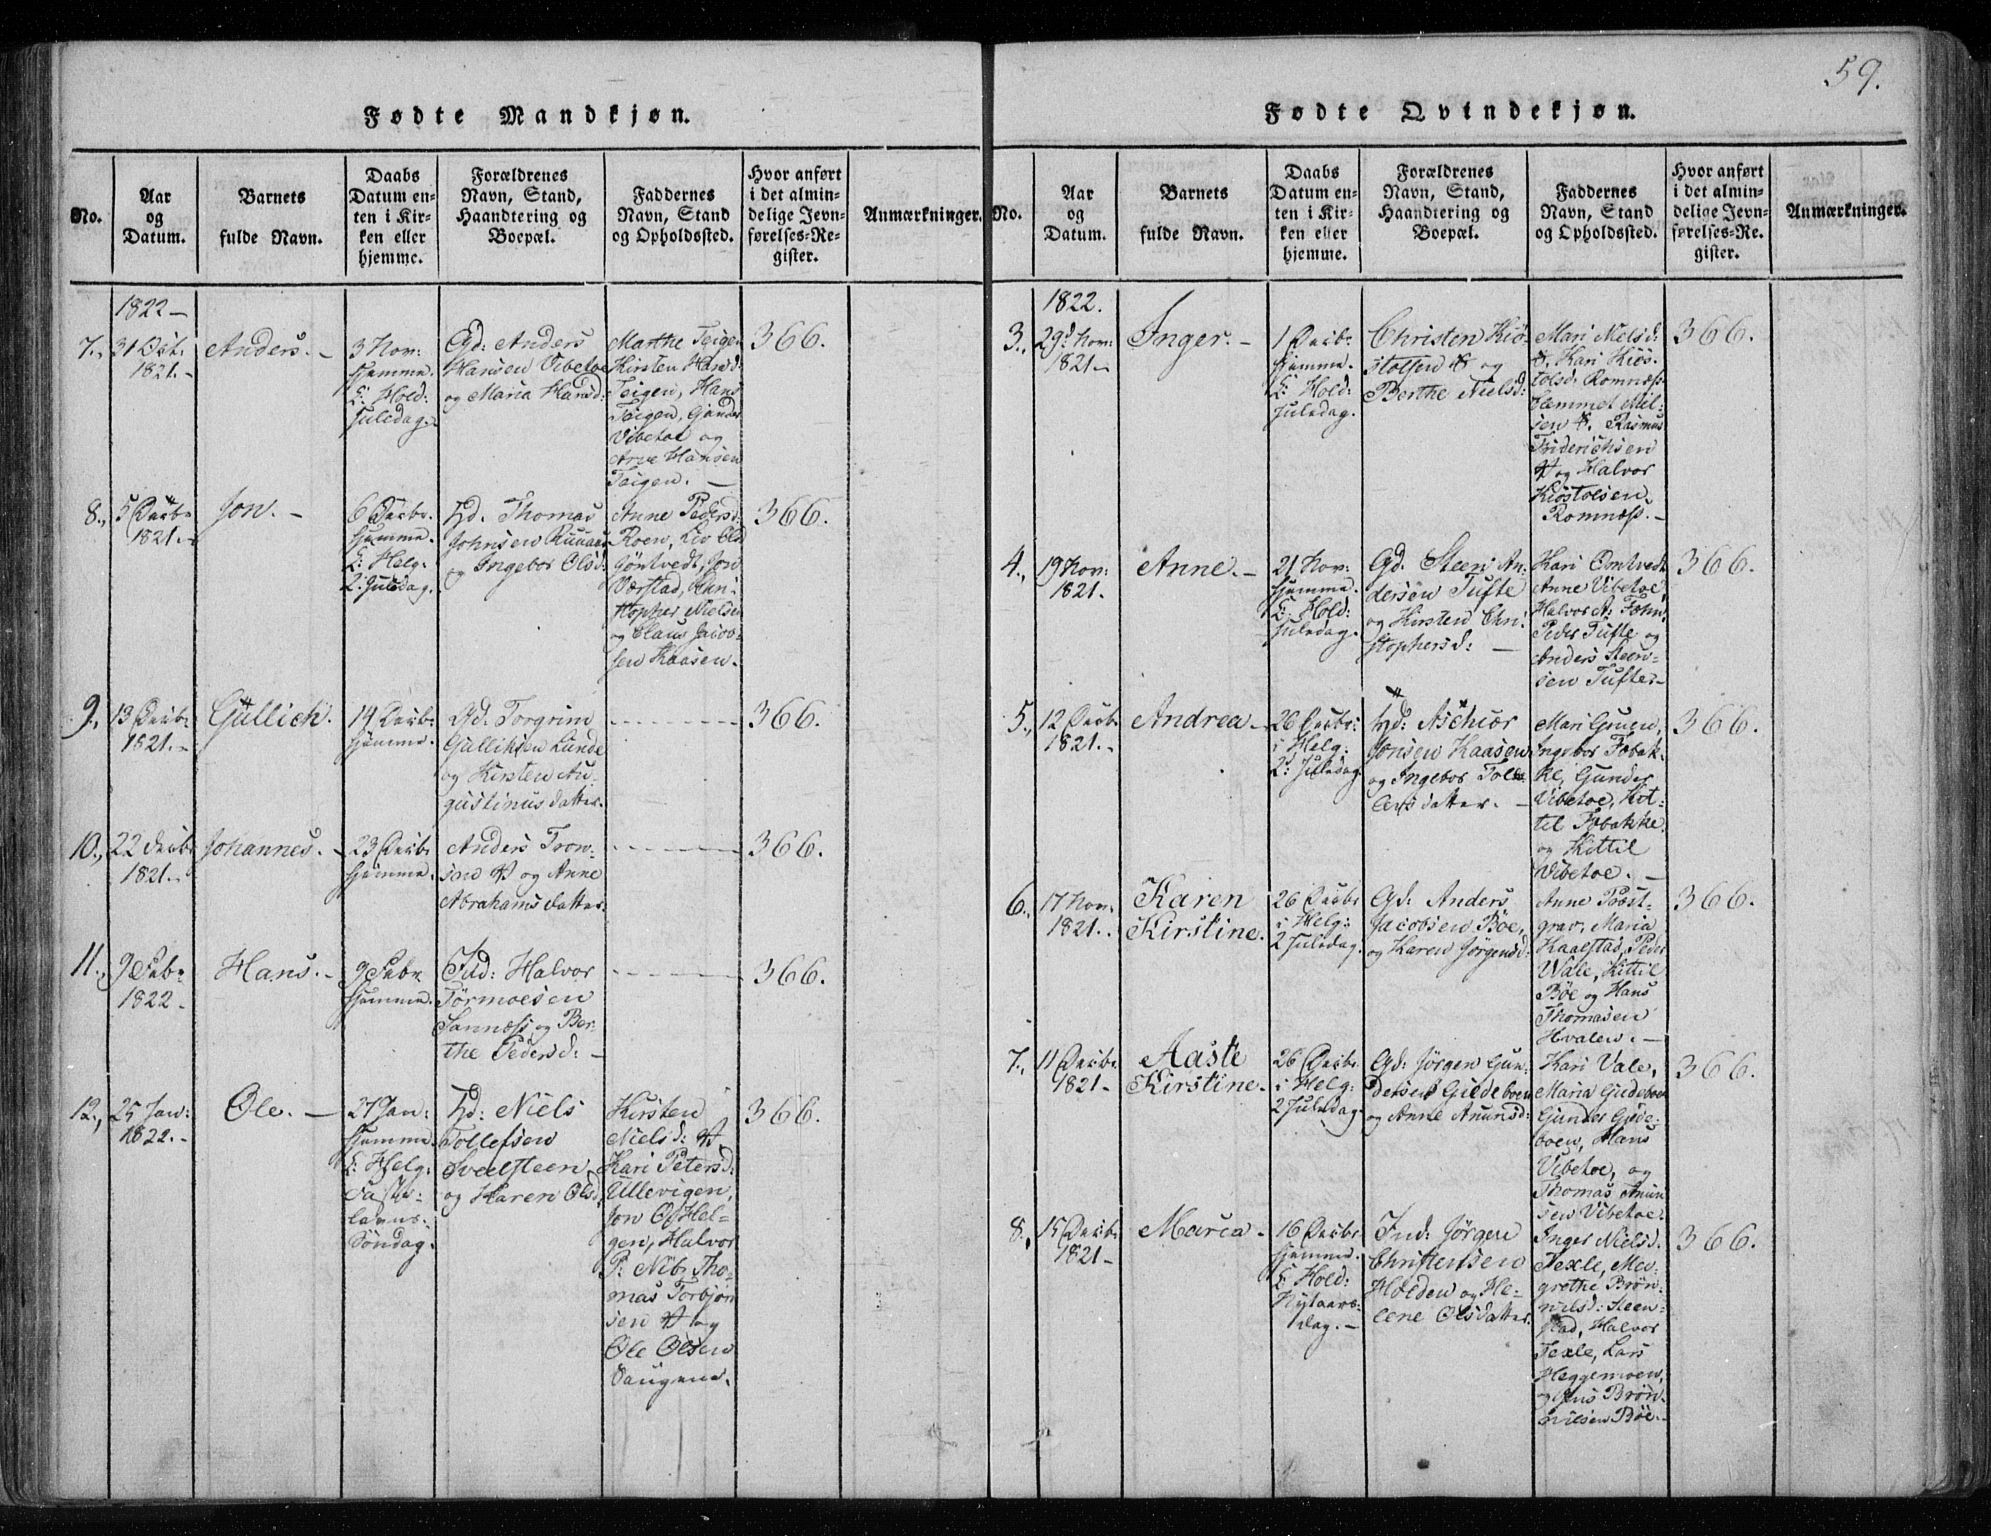 59.
Fødte Mandkjøn.
No.
Aar
og
Datum.
Barnets
fulde Navn.
Daabs
Datum en-
ten i Kir-
ken eller
hjemme.
Forældrenes
Navn, Stand,
Haandtering og
Boepæl.
Faddernes
Navn, Stand
og Opholdssted.
Hvor anført
i det almin-
delige Jevn-
førelses-Re-
gister.
Anmærkninger.
1822 –
7.,
31 Oct:
1821. –
Anders. –
3 Nov:
hjemme.
Hold:
Juledag.
Gd: Anders
Hansen Vibetoe
og Maria Hansd:
Marthe Teigen
Kirsten Hansd:
Teigen, Hans
Teigen, Gunder
Vibetoe og
Arve Hansen
Teigen. –
366.
8.,
5 Decbr
1821. –
Jon. –
6 Decbr.
hjemme.
Helg:
2. Juledag.
Hd. Thomas
Johnsen
og Ingebor Olsd:
Anne Pedersd:
Roen, Liv
Jøntvedt, Jon
Værstad, Chri-
stopher Nielsen
og Claus Jacob-
sen Kaasen.
366.
9.,
13 Decbr
1821. –
Gullich.
14 Decbr.
hjemme.
Gd. Torgrim
Gulliksen Lunde
og Kirsten Au-
gustinusdatter.
366.
10.,
22 Decbr
1821. –
Johannes. –
23 Decbr
hjemme.
Anders Tron-
sen og Anne
Abrahamsdatter.
366.
11.,
9 Febr
1822 –
Hans. –
9 Febr
hjemme.
Ind: Halvor
Tormoesen
Sannæss og Ber-
the Pedersd: –
366.
12.,
25 Jan:
1822. –
Ole. –
27 Jan:
hjemme.
Helg:
Faste-
lavns-
Søndag.
Hd: Niels
Tollefsen
Sveelsteen
og Karen Olsd.
Kirsten
Nielsd:
Kari Petersd:
Ullevigen,
Jon O: Hel-
gen, Halvor
P: Nib. Tho-
mas Torbjøn
sen og
Ole Olsen
Saugene.
366.
Fødte Qvindekjøn.
No.
Aar
og
Datum.
Barnets
fulde Navn.
Daabs
Datum en-
ten i Kir-
ken eller
hjemme.
Forældrenes
Navn, Stand,
Haandtering og
Boepæl.
Faddernes
Navn, Stand
og Opholdssted.
Hvor anført
i det almin-
delige Jevn-
førelses-Re-
gister.
Anmærkninger.
1822.
3.,
29d Nov:
1821. –
Inger. –
1 Decbr.
hjemme.
Hold:
Juledag.
Christen Kiø-
stolsen og
Berthe Nielsd:
Mari Nielsd:
Kari Kiøs-
tolsd: Romnæss
Clemmet Niel-
sen. Rasmus
Friderichsen
og Halvor
Kiøstolsen
Romnæss. –
366.
4.,
19 Nov:
1821.
Anne. –
21 Nov:
hjemme.
Hold:
Juledag.
Gd. Steen An-
dersen Tufte
og Kirsten Chri-
stophersd: –
Kari Omtvedt
Anne Vibetoe,
Halvor A:
Peder Tufte og
Anders Steen-
sen Tufte. –
366.
5.,
12 Decbr
1821. –
Andrea –
26 Decbr:
i Helg:
2. Juledag
Hd: Aschior
Jonsen Kaasen
og Ingebor
datter. –
Mari Gruen,
Ingebor Fobak-
ke, Gunder
Vibetoe, Kit-
til Fobakke
og Kittil
Vibetoe. –
366.
6.,
17 Nov.
1821.
Karen
Kirstine.
26 Decbr
i Helg:
2 Juledag.
Gd: Anders
Jacobsen Bøe,
og Karen Jørgensd:
Anne Prøst-
grav, Maria
Kaalstad, Peder
Vale, Kittil
Bøe og Hans
Thomasen
Hvalen. –
366.
7.,
11 Decbr.
1821 –
Aaste
Kirstine. –
26 Decbr
i Helg:
2 Juledag.
Gd: Jørgen Gun-
dersen Gudeboen
og Anne Anunsd:
Kari Vale,
Maria Gudeboen
Gunder Gude-
boen, Hans
Vibetoe, og
Thomas Anun
sen Vibetoe.
366.
8.,
15 Decbr.
1821 –
Maria.
16 Decbr
hjemme.
Hold:
Nytaars-
dag. –
Ind: Jørgen
Christensen
Holden og He-
lene Olsdatter.
Inger Nielsd.
Texle, Mar-
grethe Brøn-
nilsd: Steen-
stad, Halvor
Texle, Lars
Heggemoen,
og Jens Brøn-
nilsen Bøe. –
366.